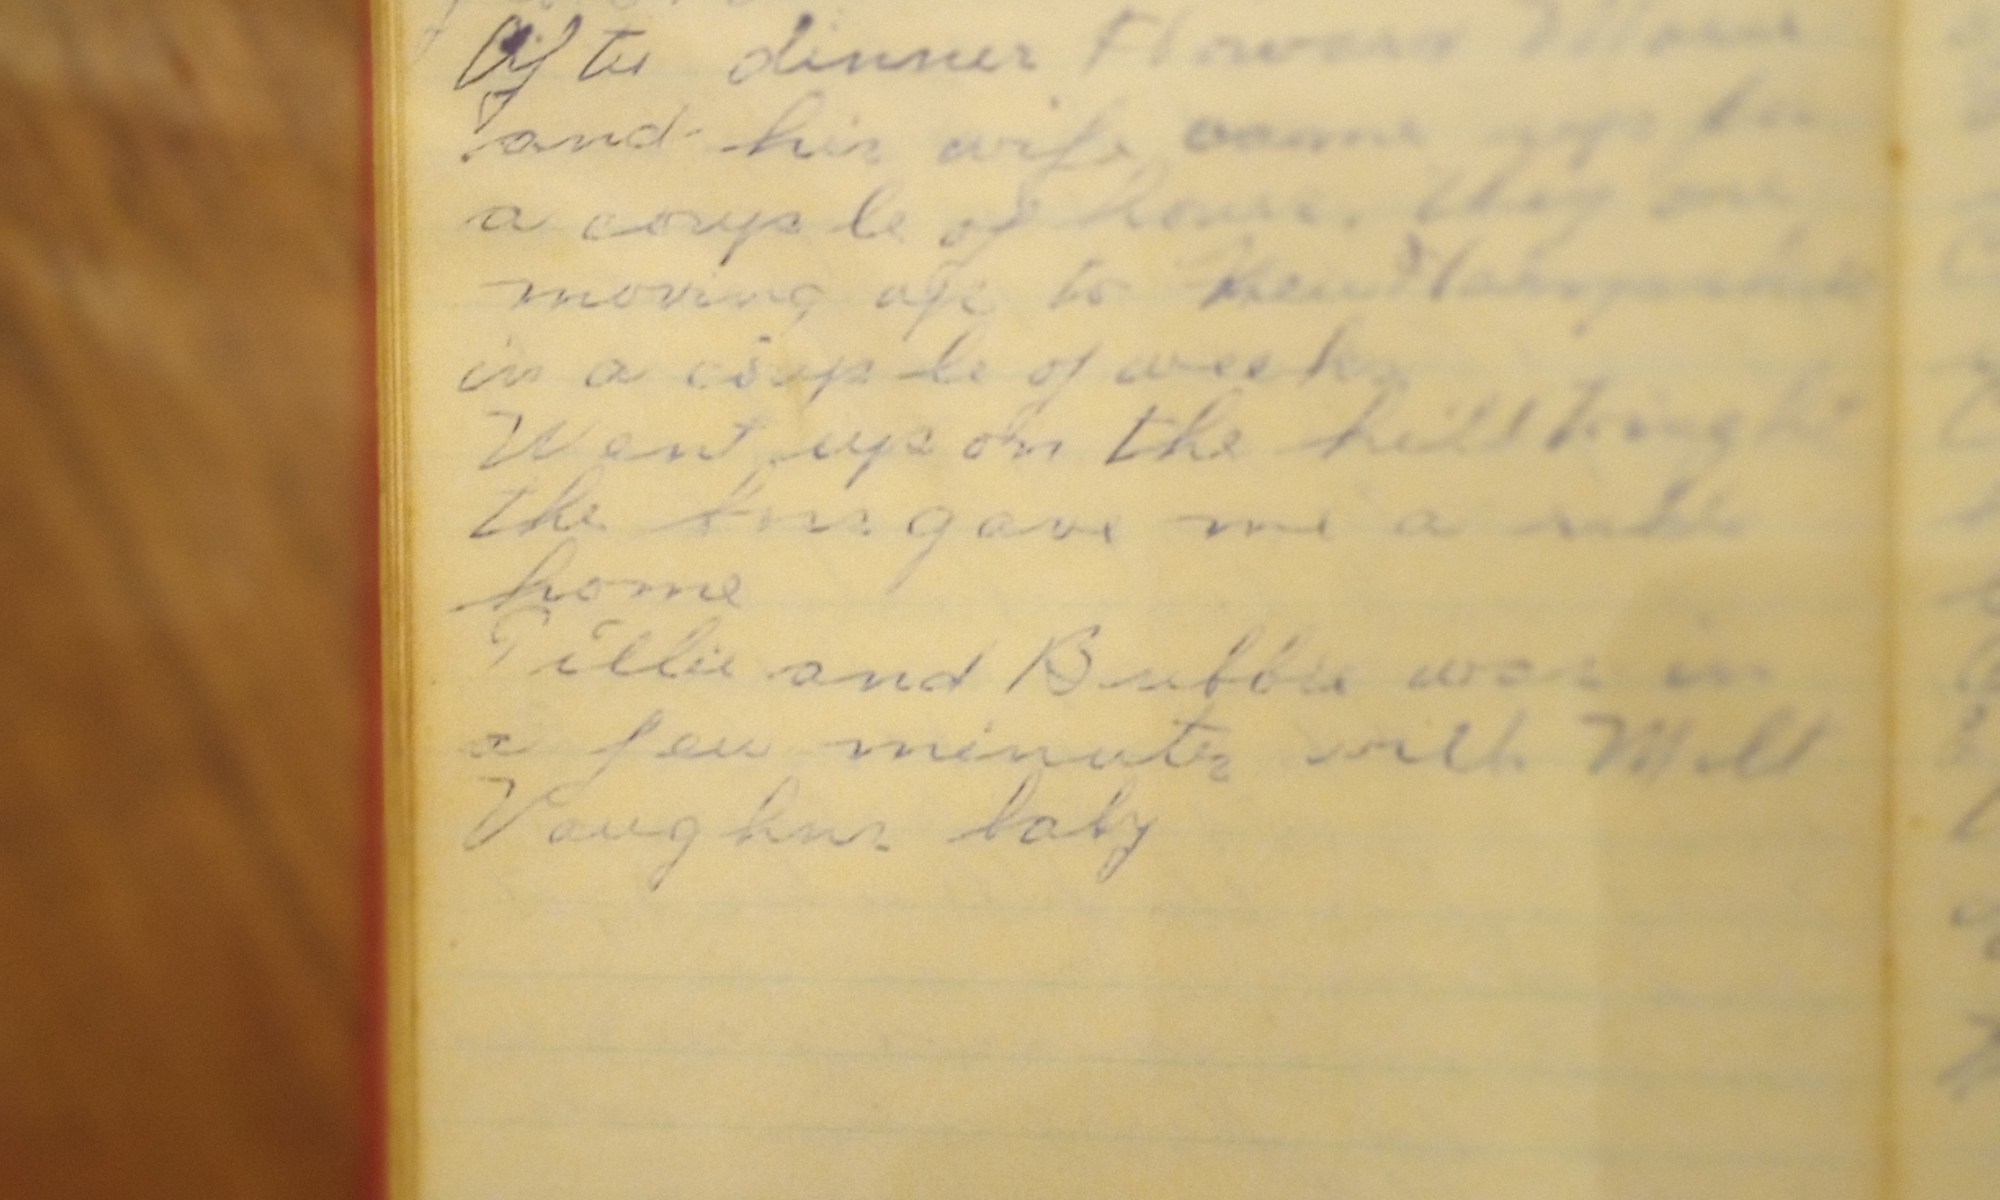 After dinner Howard
and his wife came up for
a couple of hours. they are
moving up to New Hampshire
in a couple of weeks
Went up on the hill tonight
the gave me a ride
home
Tillie and Bubbie was in
a few minutes with Milt
Vaughns baby